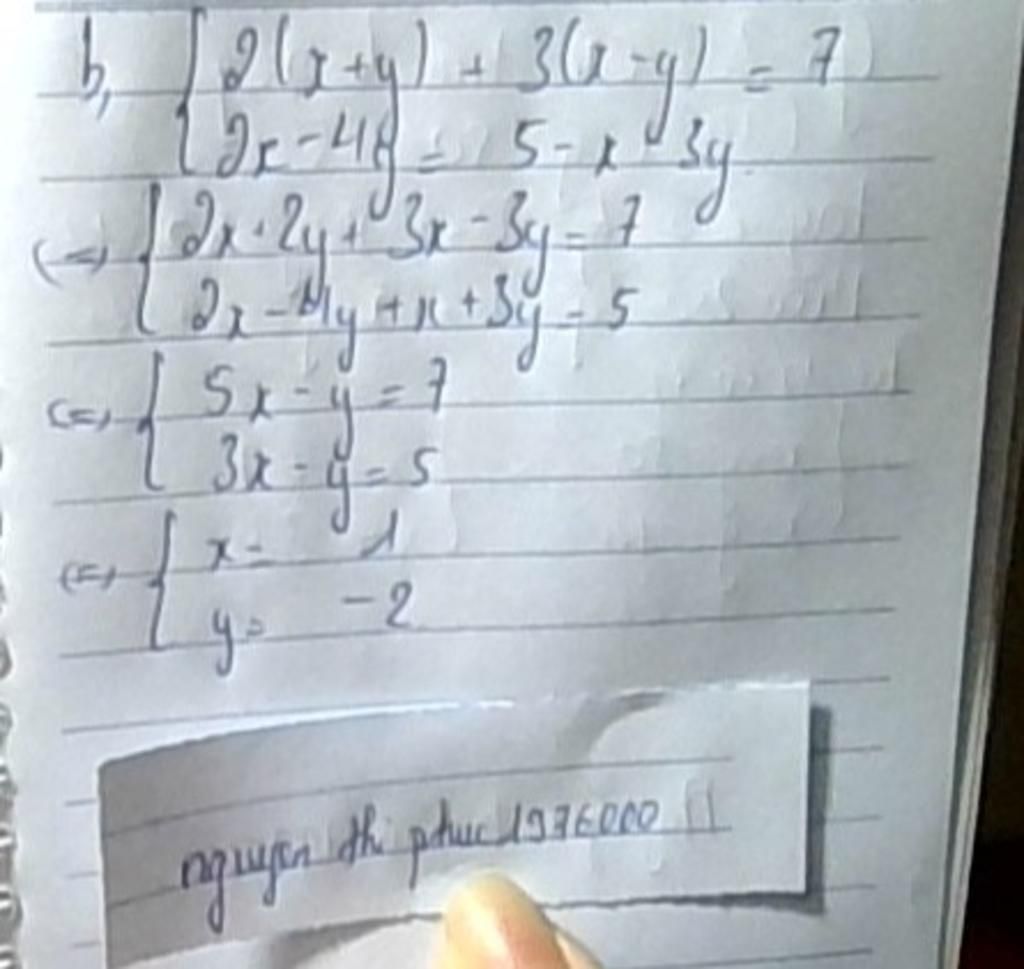 b, { 2(x+y) + 3(x-y) = 7
2x - 4y = 5 - x - 3y
<=> { 2x + 2y + 3x - 3y = 7
2x - 4y + x + 3y = 5
<=> { 5x - y = 7
3x - y = 5
<=> { x = 1
y = -2
nguyen thi phuc 1976000